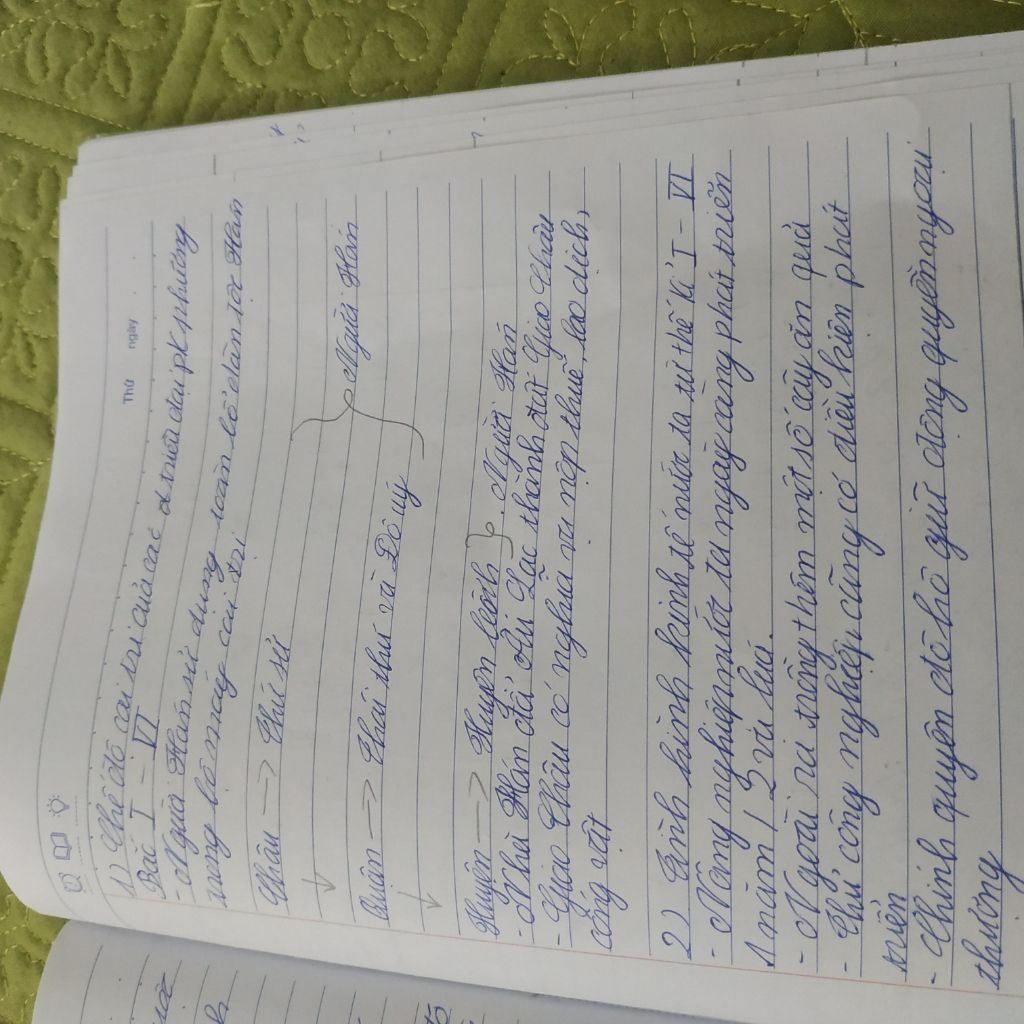 Thứ ngày
1) Chế độ cai trị của các triều đại pk phương
Bắc I - VI
- Người Hán sử dụng toàn bộ dân tộc Hán
trong bộ máy cai trị
Châu -> Thứ sử
Quận -> Thái thú và Đô uý } Người Hán
Huyện -> Huyện lệnh }. Người Hán
- Nhà Hán đổi Âu Lạc thành đất Giao Châu
- Giao Châu có nghĩa vụ nộp thuế, lao dịch,
cống vật
2) Tình hình kinh tế nước ta từ thế kỉ I - VI
- Nông nghiệp nước ta ngày càng phát triển
1 năm, 2 vụ lúa.
- Ngoài ra trồng thêm một số cây ăn quả
- Thủ công nghiệp cũng có điều kiện phát
triển
- Chính quyền đô hộ giữ độc quyền ngoại
thương